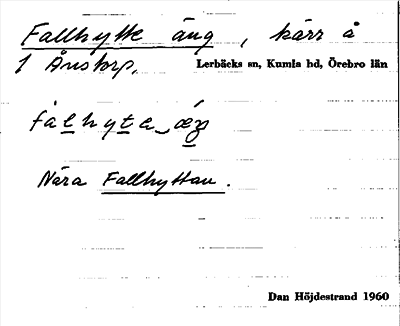 Fallhytte äng, kärr å
1 Ånstorp. Lerbäcks sn, Kumla hd, Örebro län
fàlhyta_ǽŋ
Nära Fallhyttan.
Dan Höjdestrand 1960